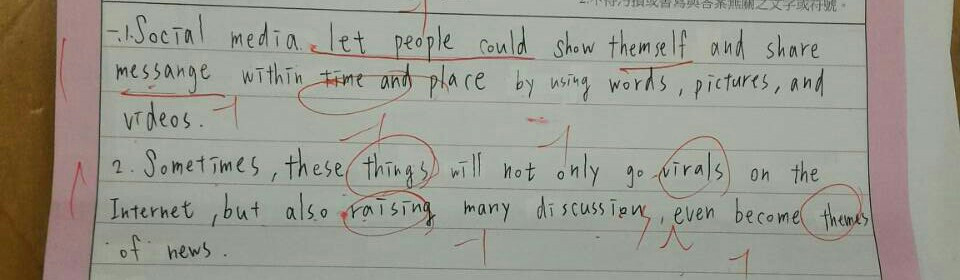 2.不得污損或書寫與答案無關之文字或符號。
一.1.Social media let people could show themself and share
messange within time and place by using words, pictures, and
videos. -1
2. Sometimes, these things will not only go virals on the
Internet, but also raising many discussions, even become themes
of news.